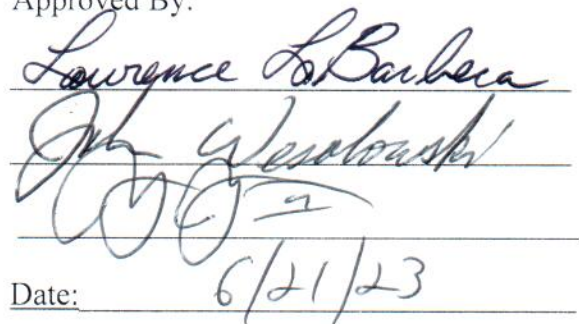 Approved By:
Lawrence LaBarbera
John Wesolowski
Date: 6/21/23